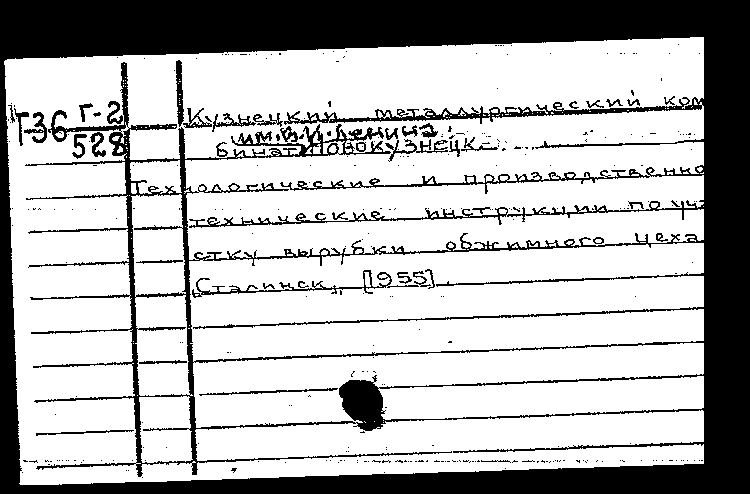 Г-2
Т36
528
Кузнецкий металлургический ком
им. В.И. Ленина.
бинат Новокузнецк.
Технологические и производственно
технические инструкции по уча
стку вырубки обжимного цеха
"Сталинск", [1955].